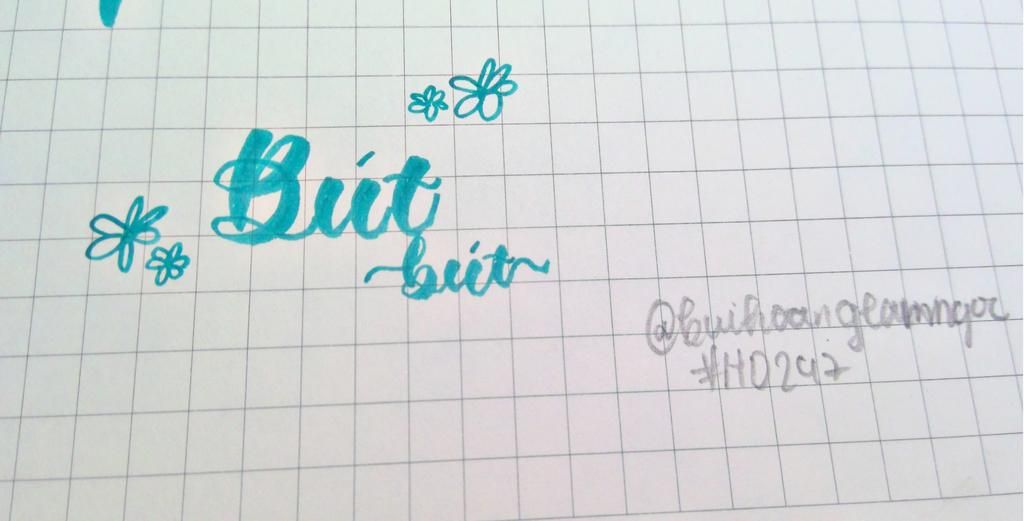 Bút
~bút~
@buihoanglamngoc
#HD247